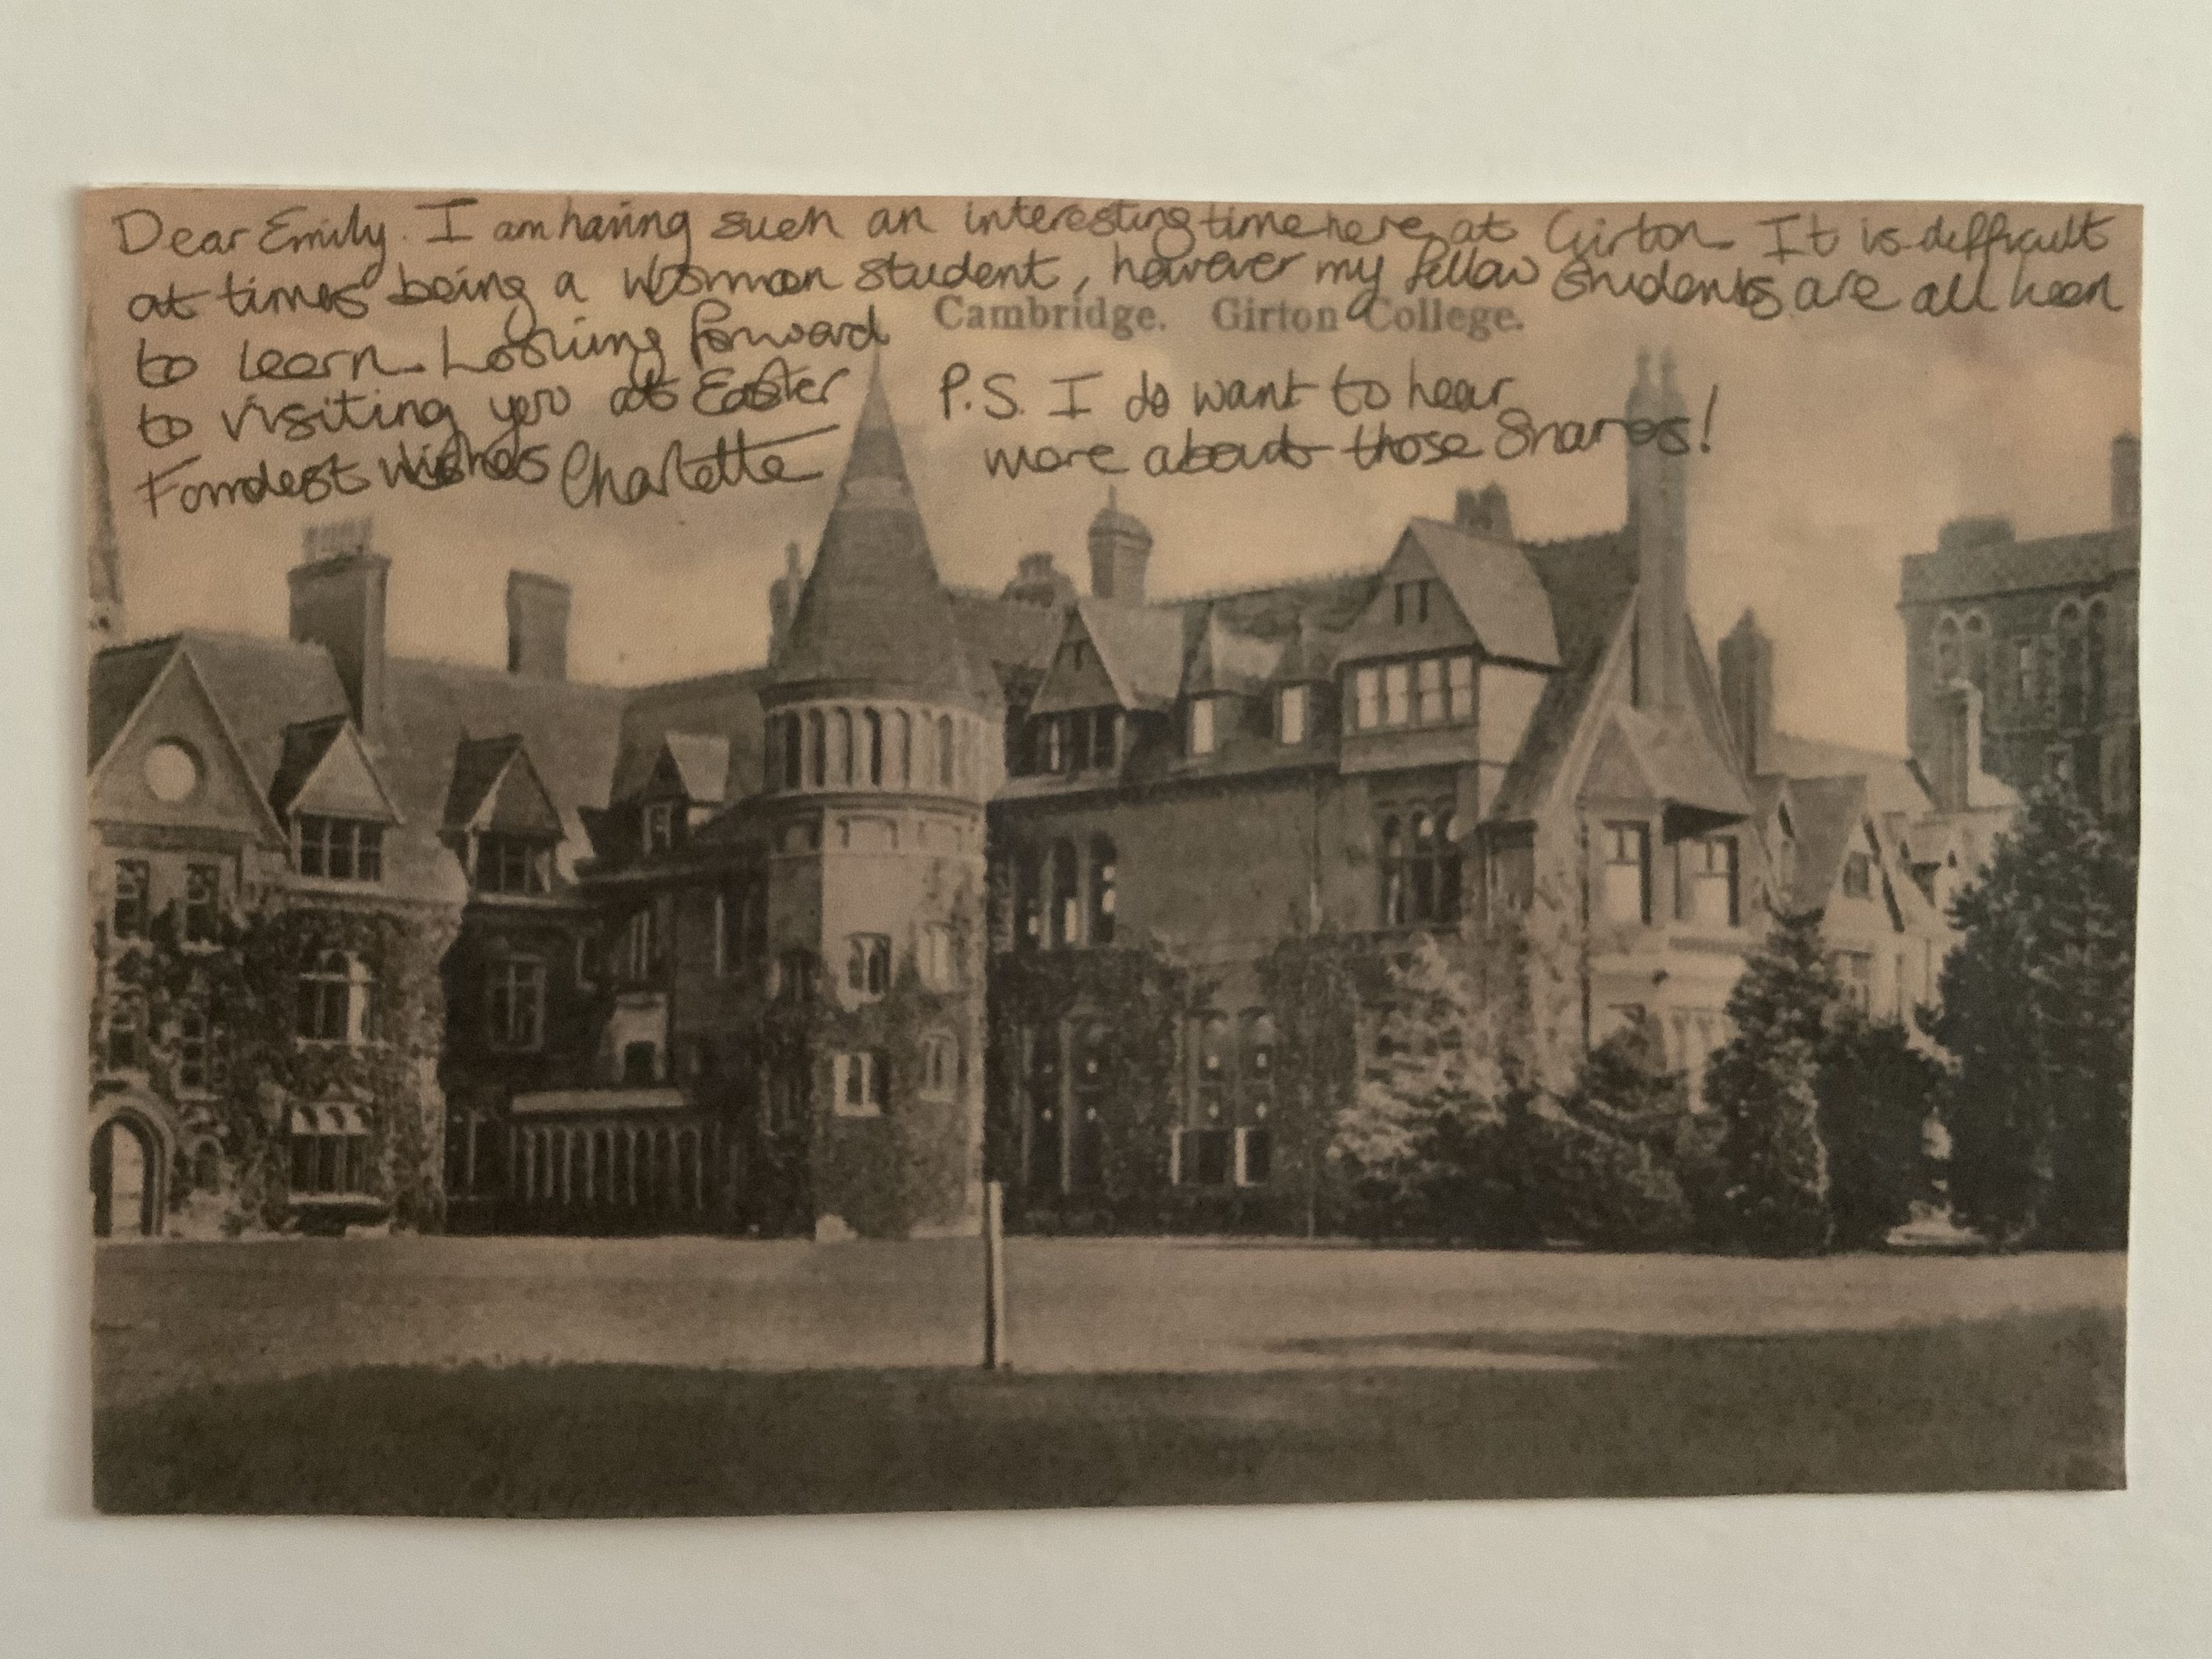 Dear Emily. I am having such an interesting time here at Girton. It is difficult
at times being a woman student, however my fellow students are all keen
Cambridge. Girton College.
to learn. Looking forward
to visiting you at Easter
Fondest wishes Charlotte
P.S. I do want to hear
more about those Snares!